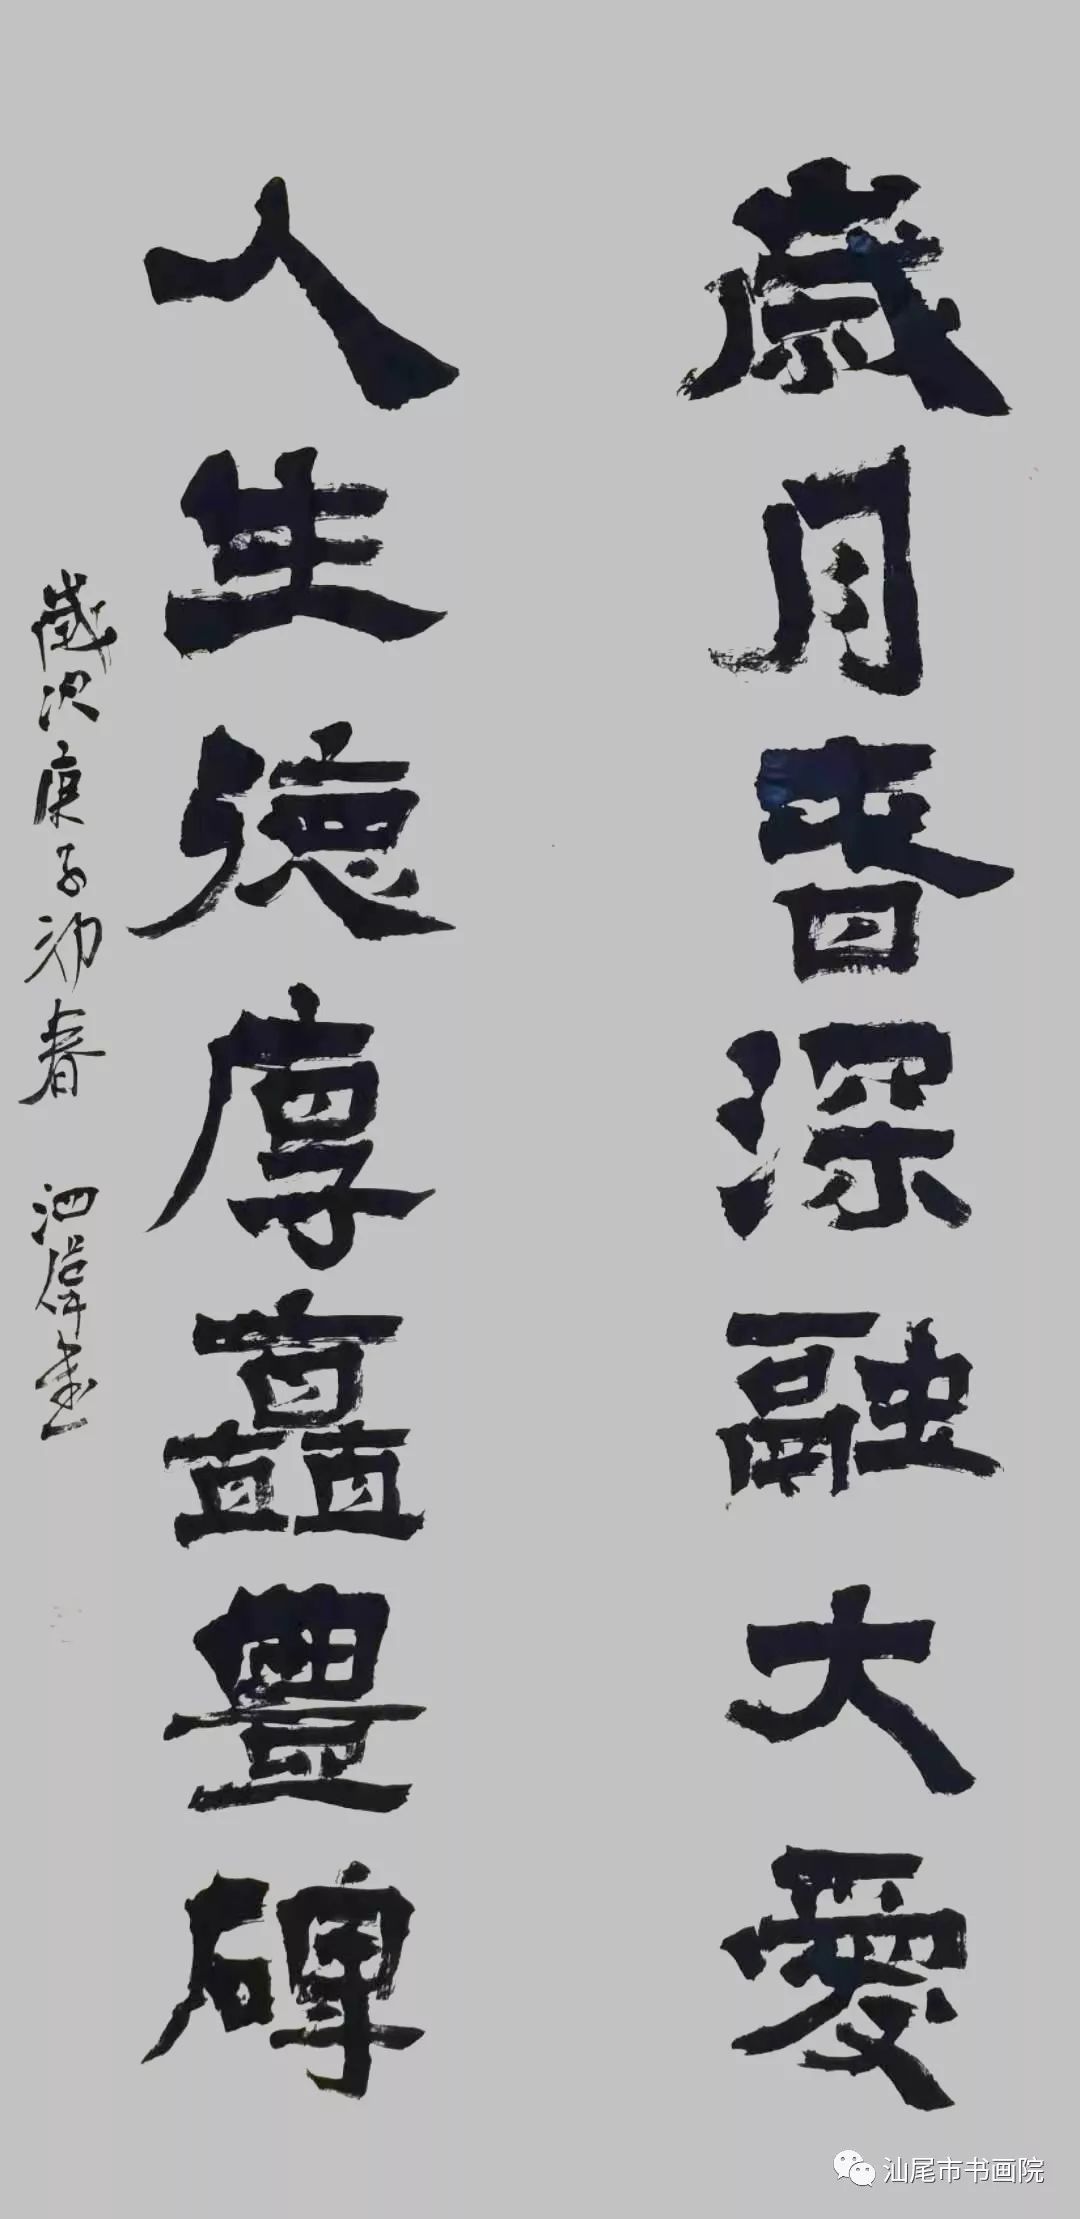 歲月春深融大愛
人生德厚矗豐碑
歲次庚子初春 泗偉書
汕尾市书画院